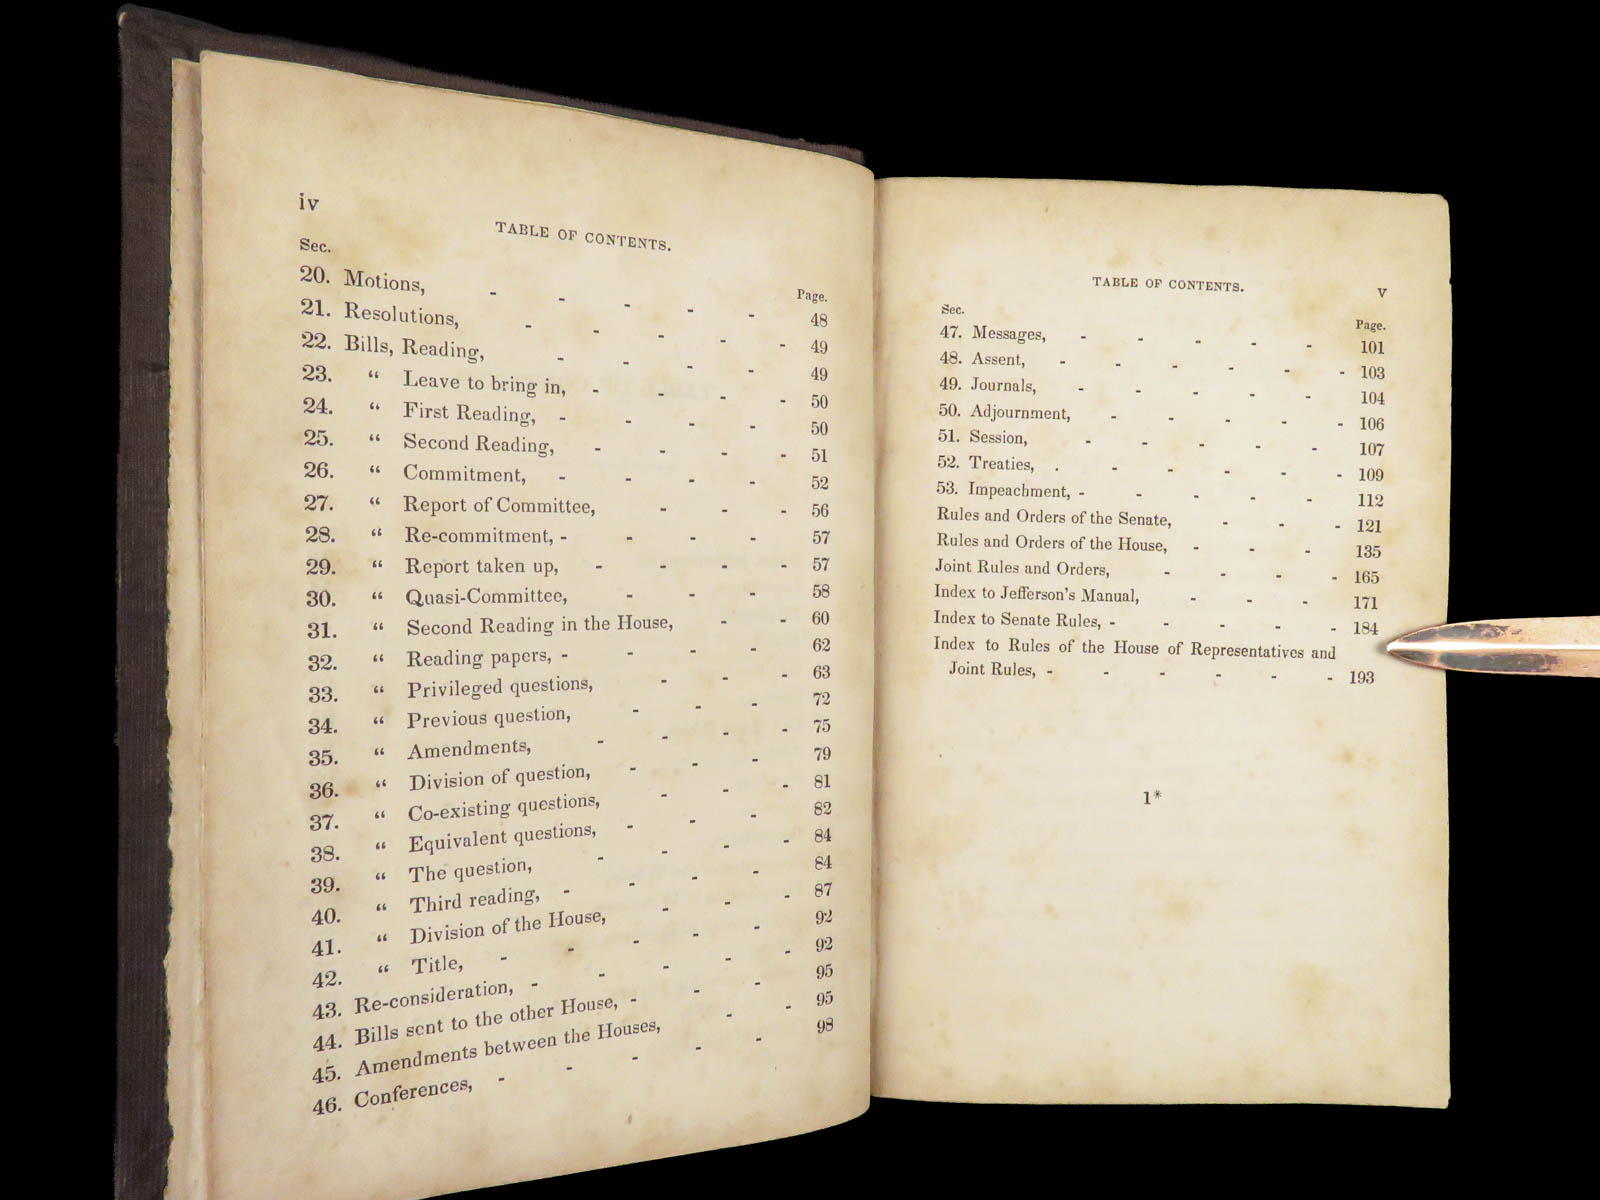 iv
TABLE OF CONTENTS.
Sec. Page.
20. Motions, - - - - - 48
21. Resolutions, - - - - - 49
22. Bills, Reading, - - - - 49
23. “ Leave to bring in, - - - - 50
24. “ First Reading, - - - - 50
25. “ Second Reading, - - - - 51
26. “ Commitment, - - - - 52
27. “ Report of Committee, - - - 56
28. “ Re-commitment, - - - - 57
29. “ Report taken up, - - - - 57
30. “ Quasi-Committee, - - - 58
31. “ Second Reading in the House, - - 60
32. “ Reading papers, - - - - 62
33. “ Privileged questions, - - - 63
34. “ Previous question, - - - 72
35. “ Amendments, - - - - 75
36. “ Division of question, - - - 79
37. “ Co-existing questions, - - - 81
38. “ Equivalent questions, - - - 82
39. “ The question, - - - - 84
40. “ Third reading, - - - - 84
41. “ Division of the House, - - - 87
42. “ Title, - - - - - 92
43. Re-consideration, - - - - - 92
44. Bills sent to the other House, - - - 95
45. Amendments between the Houses, - - 95
46. Conferences, - - - - - 98
TABLE OF CONTENTS. v
Sec. Page.
47. Messages, - - - - - 101
48. Assent, - - - - - - 103
49. Journals, - - - - - 104
50. Adjournment, - - - - - 106
51. Session, - - - - - 107
52. Treaties, . - - - - - 109
53. Impeachment, - - - - - 112
Rules and Orders of the Senate, - - - 121
Rules and Orders of the House, - - - 135
Joint Rules and Orders, - - - - 165
Index to Jefferson's Manual, - - - 171
Index to Senate Rules, - - - - - 184
Index to Rules of the House of Representatives and
Joint Rules, - - - - - - 193
1*